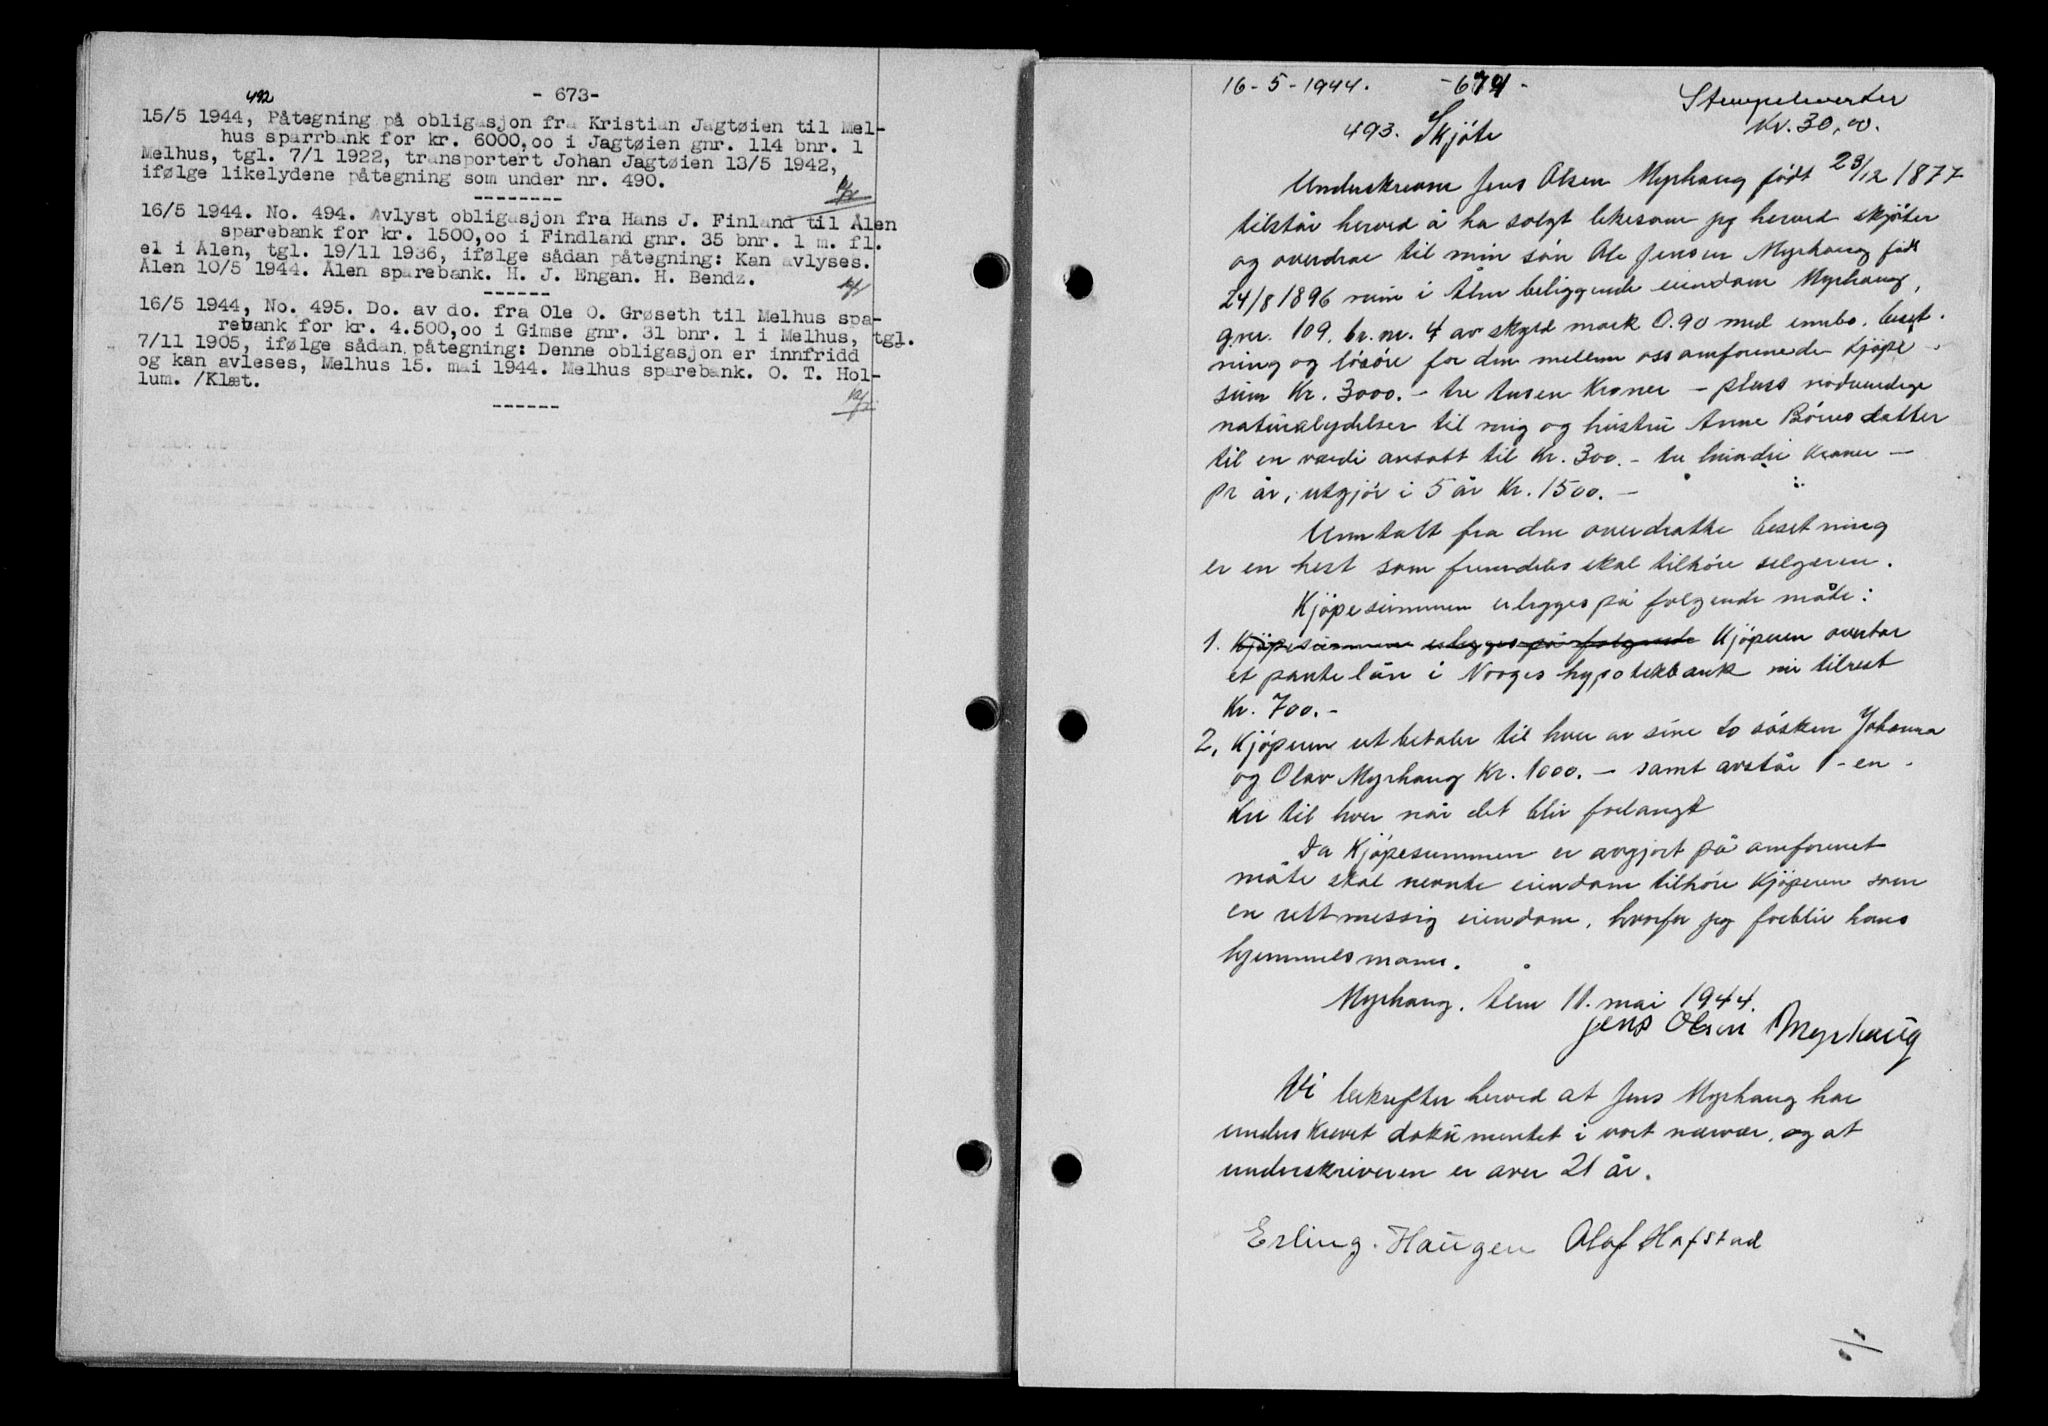 492
- 673-
15/5 1944, Påtegning på obligasjon fra Kristian Jagtøien til Mel-
hus sparrbank for kr. 6000,oo i Jagtøien gnr. 114 bnr. 1
Melhus, tgl. 7/1 1922, transportert Johan Jagtøien 13/5 1942,
ifølge likelydene påtegning som under nr. 490.
--------
16/5 1944. No. 494. Avlyst obligasjon fra Hans J. Finland til Ålen
sparebank for kr. 1500,oo i Findland gnr. 35 bnr. 1 m. fl.
el i Ålen, tgl. 19/11 1936, ifølge sådan påtegning: Kan avlyses.
Ålen 10/5 1944. Ålen sparebank. H. J. Engan. H. Bendz.
------
16/5 1944, No. 495. Do. av do. fra Ole O. Grøseth til Melhus spa-
rebank for kr. 4.500,oo i Gimse gnr. 31 bnr. 1 i Melhus, tgl.
7/11 1905, ifølge sådan påtegning: Denne obligasjon er innfridd
og kan avleses, Melhus 15. mai 1944. Melhus sparebank. O. T. Hol-
lum. /Klæt.
------
16-5-1944. -674-
Stempelmerker
Kr. 30,00.
493. Skjöte
Underskrevne Jens Olsen Myrhaug født 23/12 1877
tilstår herved å ha solgt likesom jeg herved skjöter
og overdrar til min sön Ole Jensen Myrhaug født
24/8 1896 min i Ålen beliggende eiendom Myrhaug,
gnr. 109, br. nr. 4 av skyld mark 0.90 med innbo, beset-
ning og lösöre for den mellem oss omforenede kjöpe-
sum Kr. 3000.- tre tusen Kroner - pluss nödvendige
naturalydelser til mig og hustru Anne Börresdatter
til en verdi ansatt til Kr. 300.- tre hundre Kroner -
pr år, utgjör i 5 år Kr. 1500.-
Unntatt fra den overdratte besetning
er en hest som fremdeles skal tilhöre selgeren.
Kjöpesummen erlegges på folgende måte:
1. Kjöpesummen erlegges på folgende Kjöperen overtar
et pantelån i Norges hypotekbank nu tilrest
Kr. 700.-
2, Kjöperen utbetaler til hver av sine to sösken Johanna
og Olav Myrhaug Kr. 1000.- samt avstår 1-en-
Ku til hver når det blir forlangt
Da Kjöpesummen er avgjort på omforenet
måte skal nevnte eiendom tilhöre Kjöperen som
en rettmessig eiendom, hvorfor jeg forblir hans
hjemmelsmann.
Myrhaug. Ålen 11. mai 1944.
Jens Olsen Myrhaug
Vi bekrefter herved at Jens Myrhaug har
underskrevet dokumentet i vort nærvær, og at
underskriveren er over 21 år.
Erling. Haugen Olaf Hafstad